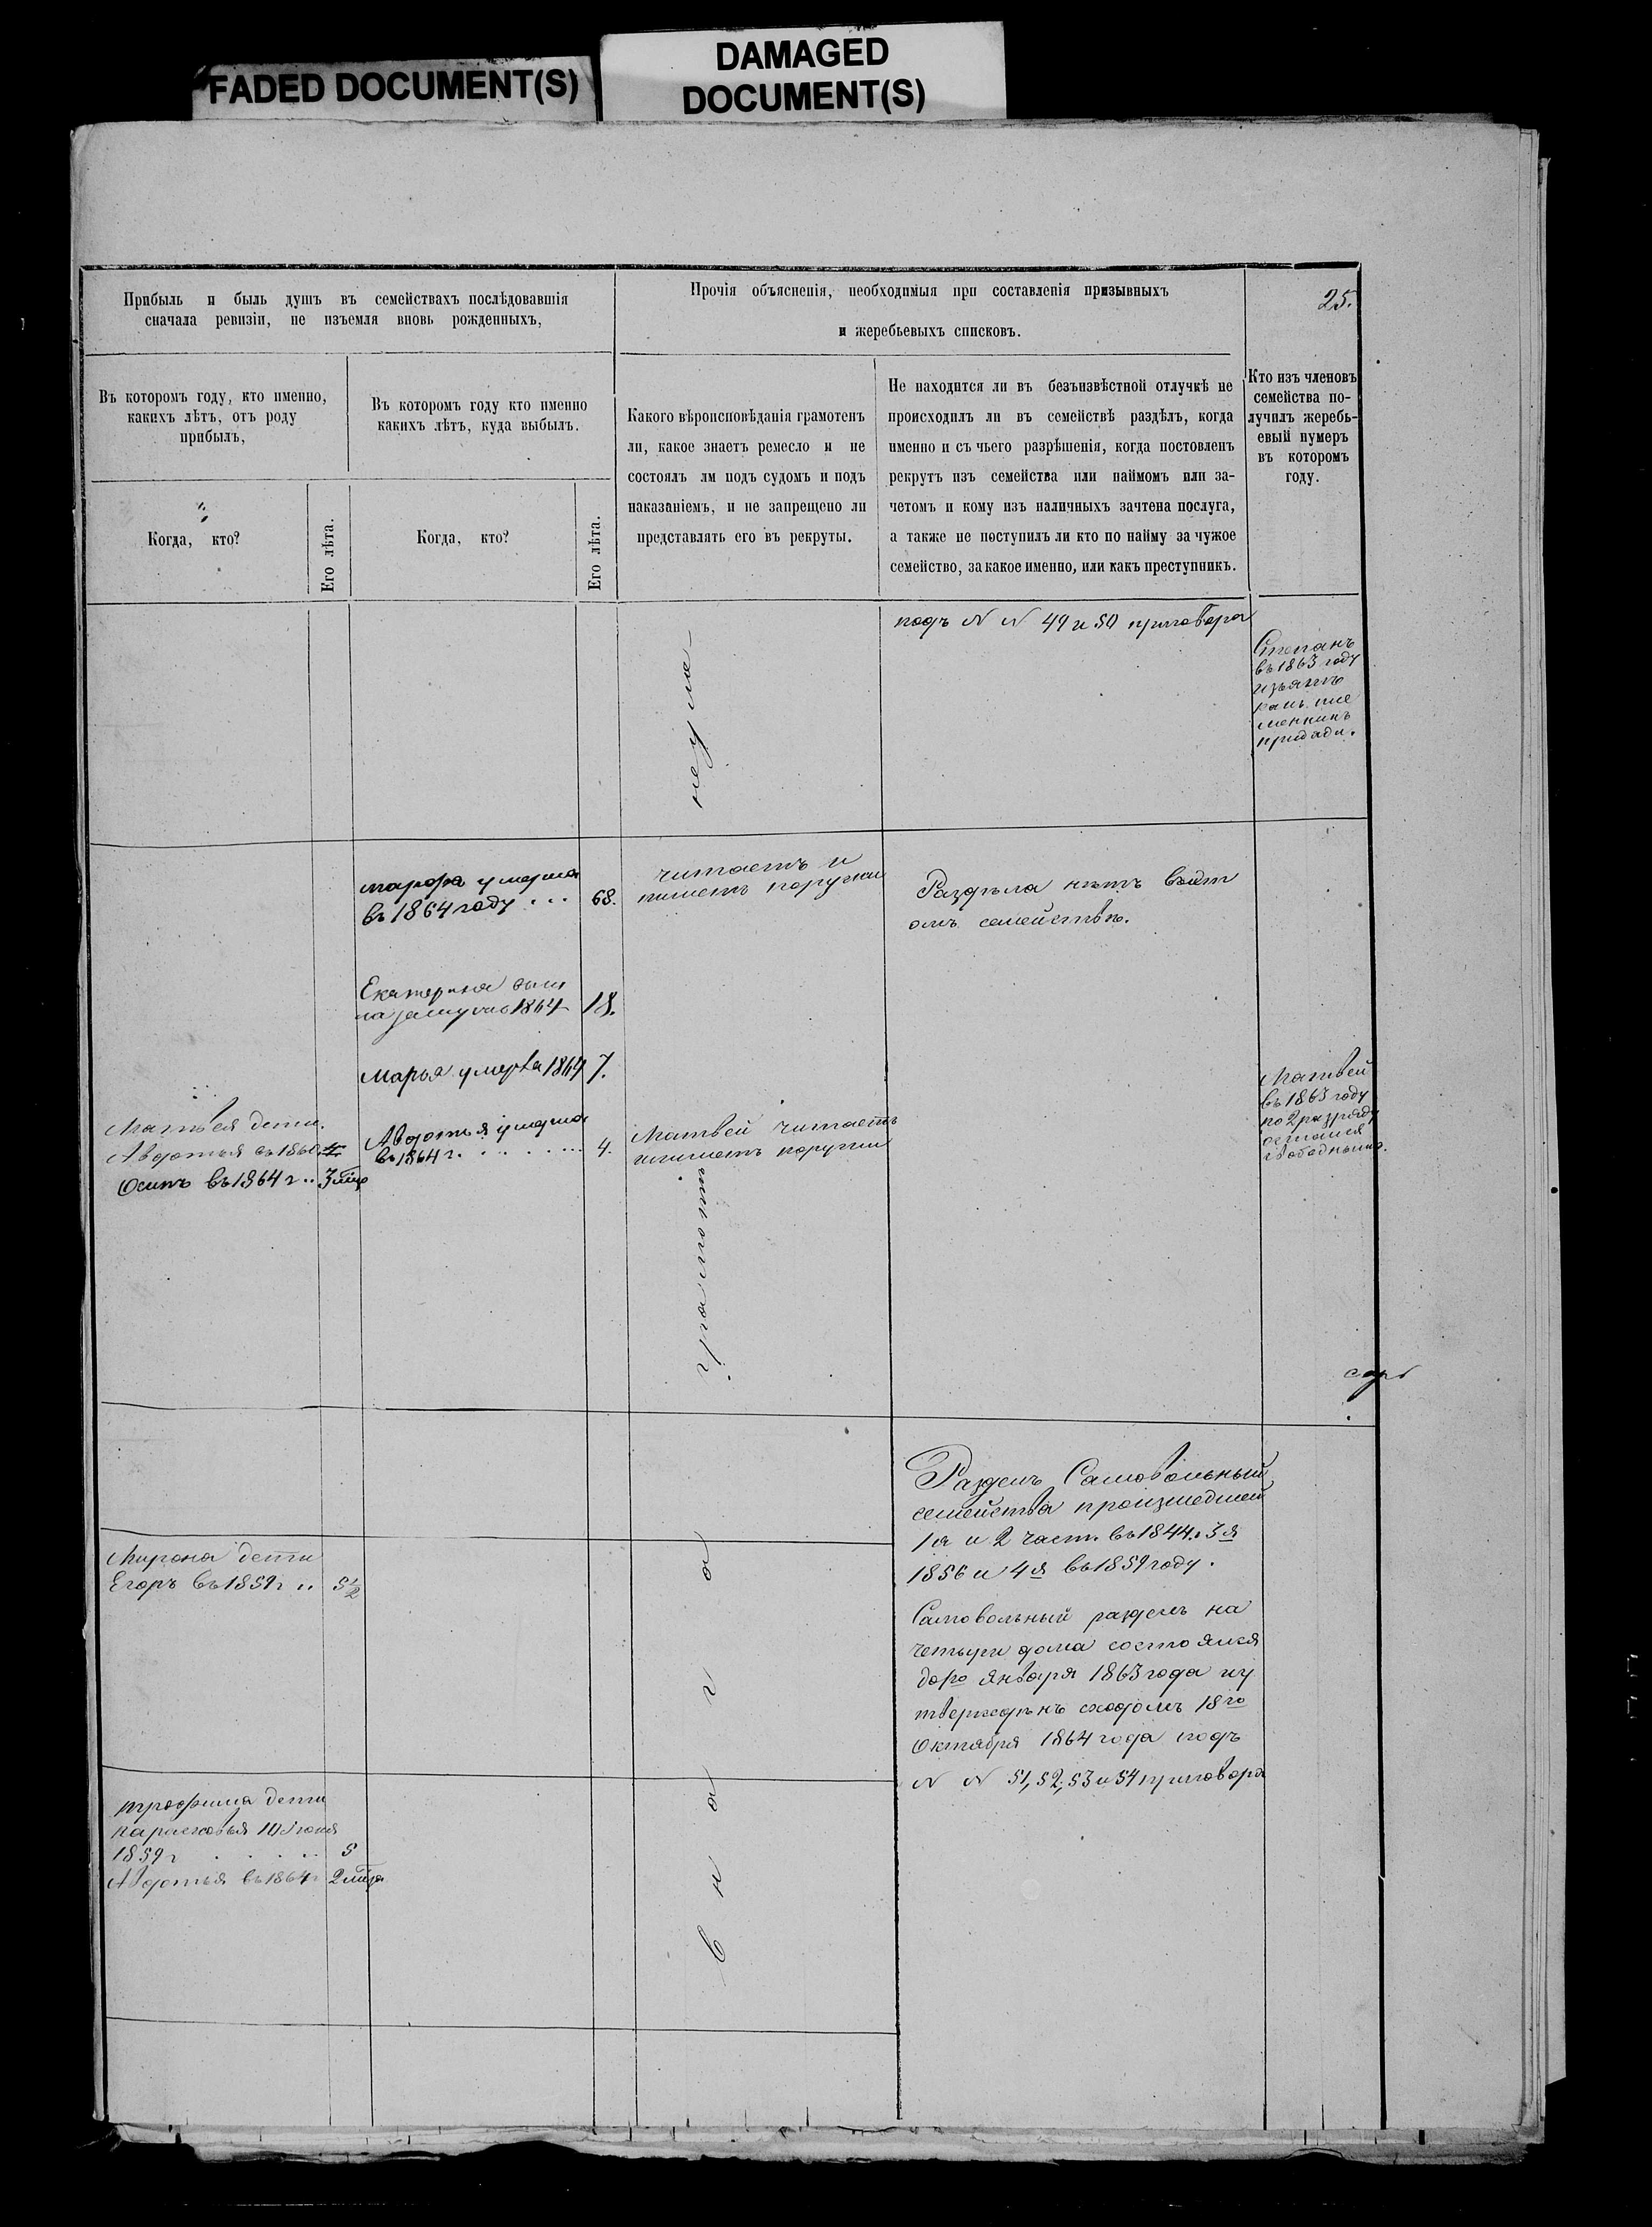 FADED DOCUMENT(S)
DAMAGED
DOCUMENT(S)
25.
Прибыль и быль душъ въ семействахъ послѣдовавшія
сначала ревизіи, не изъемля вновь рожденныхъ,
Прочія объясненія, необходимыя при составленія призывныхъ
и жеребьевыхъ списковъ.
Въ которомъ году, кто именно,
какихъ лѣтъ, отъ роду
прибылъ,
Въ которомъ году кто именно
какихъ лѣтъ, куда выбылъ.
Какого вѣроисповѣданія грамотенъ
ли, какое знаетъ ремесло и не
состоялъ лм подъ судомъ и подъ
наказаніемъ, и не запрещено ли
представлять его въ рекруты.
Не находится ли въ безъизвѣстной отлучкѣ не
происходилъ ли въ семействѣ раздѣлъ, когда
именно и съ чьего разрѣшенія, когда постовленъ
рекрутъ изъ семейства или наймомъ или за-
четомъ и кому изъ наличныхъ зачтена послуга,
а также не поступилъ ли кто по найму за чужое
семейство, за какое именно, или какъ преступникъ.
Кто изъ членовъ
семейства по-
лучилъ жеребь-
евый нумеръ
въ которомъ
году.
Когда, кто?
Его лѣта.
Когда, кто?
Его лѣта.
подъ N N 49 и 50 приговора
Степанъ
въ 1863 году
изъятъ
какъ пле
менникъ
неуме
марфа умерла
въ 1864 году ... 68.
читаетъ и
пишетъ поруски
Раздѣла нѣтъ вэт
омъ семействѣ.
Екатерина выш
ла замужъ 1864 18.
Марья умерла 1864 7.
Матвея дети.
Авдотья въ 1860
Осипъ въ 1864 г .. 3 мца
Авдотья умерла
въ 1864 г. ...... 4.
Матвей читаетъ
ипишетъ поруски
Матвей
въ 1863 году
по 2 разряду
остался
свободнымъ.
грамоте
Раздель Самовольный
семейства произшедшей
1я и 2 част. въ 1844. 3я
1856 и 4я въ 1859 году.
Мирона дети
Егоръ въ 1859 г .. 5 1/2
Самовольный раздель на
четыри дома состоялся
до 1го января 1863 года иу
твержденъ сходомъ 18го
Октября 1864 года подъ
N N 51, 52, 53 и 54 приговора
трофима дети
парасковья 10 Июня
1859 г ..... 5
Авдотья въ 1864 г 2 мца